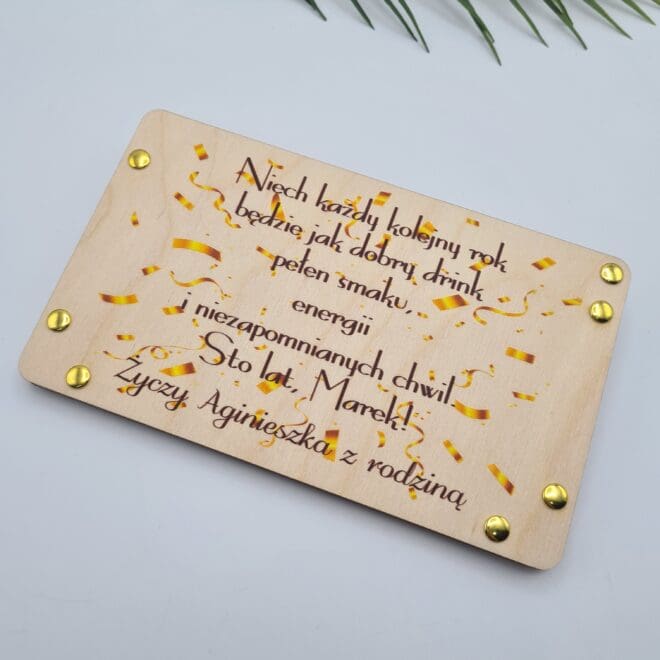 Niech każdy kolejny rok
będzie jak dobry drink
pełen smaku,
energii
i niezapomnianych chwil.
Sto lat, Marek!
Życzy Aginieszka z rodziną